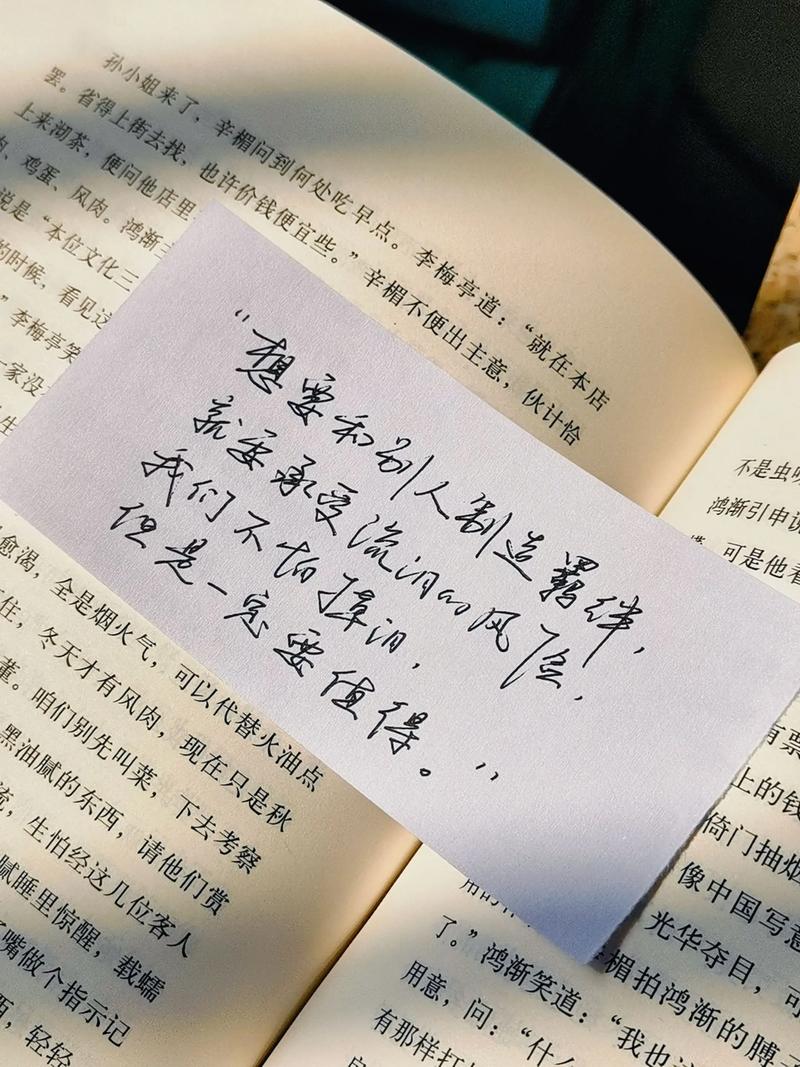 孙小姐来了，辛楣问到何处吃早点。李梅亭道：“就在本店
罢。省得上街去找，也许价钱便宜些。”辛楣不便出主意，伙计恰
上来沏茶，便问他店里
、鸡蛋、风肉。鸿渐
说是“本位文化三
的时候，看见这
”李梅亭笑
一家没
“想要和别人制造羁绊，
就要承受流泪的风险，
我们不怕掉泪，
但是一定要值得。”
愈渴，全是烟火气，可以代替火油点
住，冬天才有风肉，现在只是秋
董。咱们别先叫菜，下去考察
黑油腻的东西，请他们赏
，生怕经这几位客人
腻睡里惊醒，载蠕
了嘴做个指示记
，轻轻
不是虫
鸿渐引申说
可是他看
有票
上的钱
倚门抽烟
像中国写意
光华夺目，可
了。”鸿渐笑道：
楣拍鸿渐的膊
用意，问：“什
“我也
有那样打